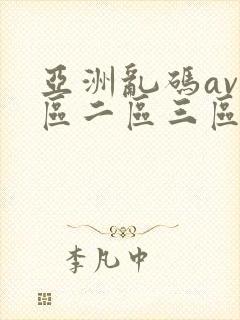 亞洲亂碼av
區二區三區
李凡中